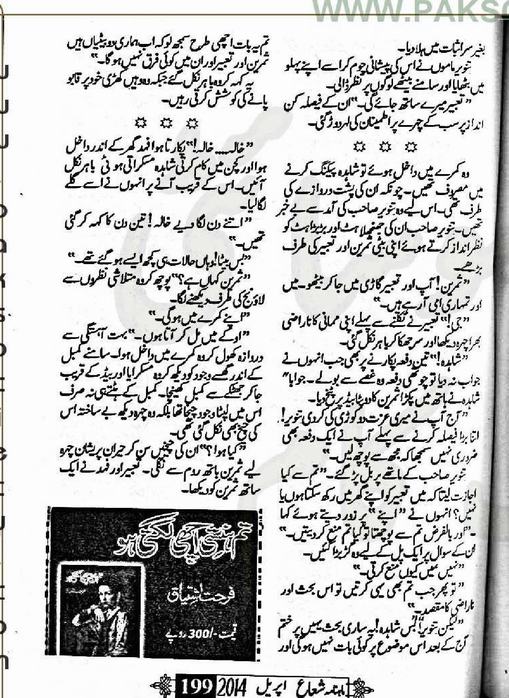 WWW.PAKSO
بغیر سر اثبات میں ہلا دیا۔
تنویر ماموں نے اس کی پیشانی چوم کر اسے اپنے پہلو
میں بٹھایا اور سامنے بیٹھے لوگوں پر نظر ڈالی۔
”تعبیر میرے ساتھ جائے گی۔“ ان کے فیصلہ کن
انداز پر سب کے چہرے پر اطمینان کی لہر دوڑ گئی۔
☆ ☆ ☆
وہ کمرے میں داخل ہوئے تو شاہدہ پیکنگ کرنے
میں مصروف تھیں۔ چونکہ ان کی پشت دروازے کی
طرف تھی۔ اس لیے وہ تنویر صاحب کی آمد سے بے خبر
تھیں۔ تنویر صاحب ان کی جھنجلاہٹ اور بڑبڑاہٹ کو
نظر انداز کرتے ہوئے اپنی بیٹی ثمرین اور تعبیر کی طرف
بڑھے۔
”ثمرین! آپ اور تعبیر گاڑی میں جا کر بیٹھو۔ میں
اور تمہاری امی آ رہے ہیں۔“
”جی!“ تعبیر نے نکلنے سے پہلے اپنی ممانی کا ناراضی
بھرا چہرہ دیکھا اور سر جھکا کر باہر نکل گئی۔
”شاہدہ!“ تین دفعہ پکارنے پر بھی جب انہوں نے
جواب نہ دیا تو چوتھی دفعہ وہ غصے سے بولے۔ جواباً“
شاہدہ نے ہاتھ میں پکڑا ثمرین کا دوپٹا بیڈ پر پٹخ دیا۔
”آج آپ نے میری عزت دو کوڑی کی کر دی تنویر!
اتنا بڑا فیصلہ کرنے سے پہلے آپ نے ایک دفعہ بھی
ضروری نہیں سمجھا کہ مجھ سے پوچھ لیں۔“
تنویر صاحب کے ماتھے پر بل پڑ گئے۔ ”تم سے کیا
اجازت لیتا کہ میں تعبیر کو اپنے گھر میں رکھ سکتا ہوں یا
نہیں؟ انہوں نے ”اپنے“ پر زور دیتے ہوئے کہا
۔”اور بالفرض تم سے پوچھتا تو کیا تم منع کر دیتیں۔“
ان کے سوال پر ایک پل کے لیے وہ گڑبڑا گئیں۔
”نہیں میں کیوں منع کرتی۔“
”تو پھر جب تم بھی یہی کرتیں تو اس بحث اور
ناراضی کا مقصد۔“
”لیکن تنویر!“ ”بس شاہدہ! یہ ساری بحث یہیں پر ختم
آج کے بعد اس موضوع پر کوئی بات نہیں ہو گی اور
تم یہ بات اچھی طرح سمجھ لو کہ اب ہماری دو بیٹیاں ہیں
ثمرین اور تعبیر اور ان میں کوئی فرق نہیں ہو گا۔“
یہ کہہ کر وہ باہر نکل گئے جبکہ وہ وہیں کھڑی خود پر قابو
پانے کی کوشش کرتی رہیں۔
☆ ☆ ☆
”خالہ.... خالہ!“ پکارتا ہوا فہد گھر کے اندر داخل
ہوا اور کچن میں کام کرتی شاہدہ مسکراتی ہوئی باہر نکل
آئیں۔ اس کے قریب آنے پر انہوں نے اسے گلے
لگا لیا۔
”اتنے دن لگا دیے خالہ! تین دن کا کہہ کر گئی
تھیں۔“
”بس بیٹا! وہاں حالات ہی کچھ ایسے ہو گئے تھے۔“
”ثمرین کہاں ہے؟“ پوچھ کر وہ متلاشی نظروں سے
لاؤنج کی طرف دیکھنے لگا۔
”اپنے کمرے میں ہو گی۔“
”اوکے میں مل کر آتا ہوں۔“ بہت آہستگی سے
دروازہ کھول کر وہ کمرے میں داخل ہوا۔ سامنے کمبل
کے اندر گھسے وجود کو دیکھ کر وہ مسکرایا اور بیڈ کے قریب
جا کر جھٹکے سے کمبل کھینچا۔ کمبل کے ہٹتے ہی نہ صرف
اس میں لپٹا وجود چیخا تھا بلکہ وہ چہرہ دیکھ بے ساختہ اس
کی چیخ بھی نکل گئی تھی۔
”کیا ہوا؟“ ان کی چیخیں سن کر حیران پریشان چہرہ
لیے ثمرین باتھ روم سے نکلی۔ تعبیر اور فہد نے ایک
ساتھ ثمرین کو دیکھا۔
تم ہنستی اچھی لگتی ہو
فرحت اشتیاق
قیمت -/300 روپے
ماہنامہ شعاع اپریل 2014 199